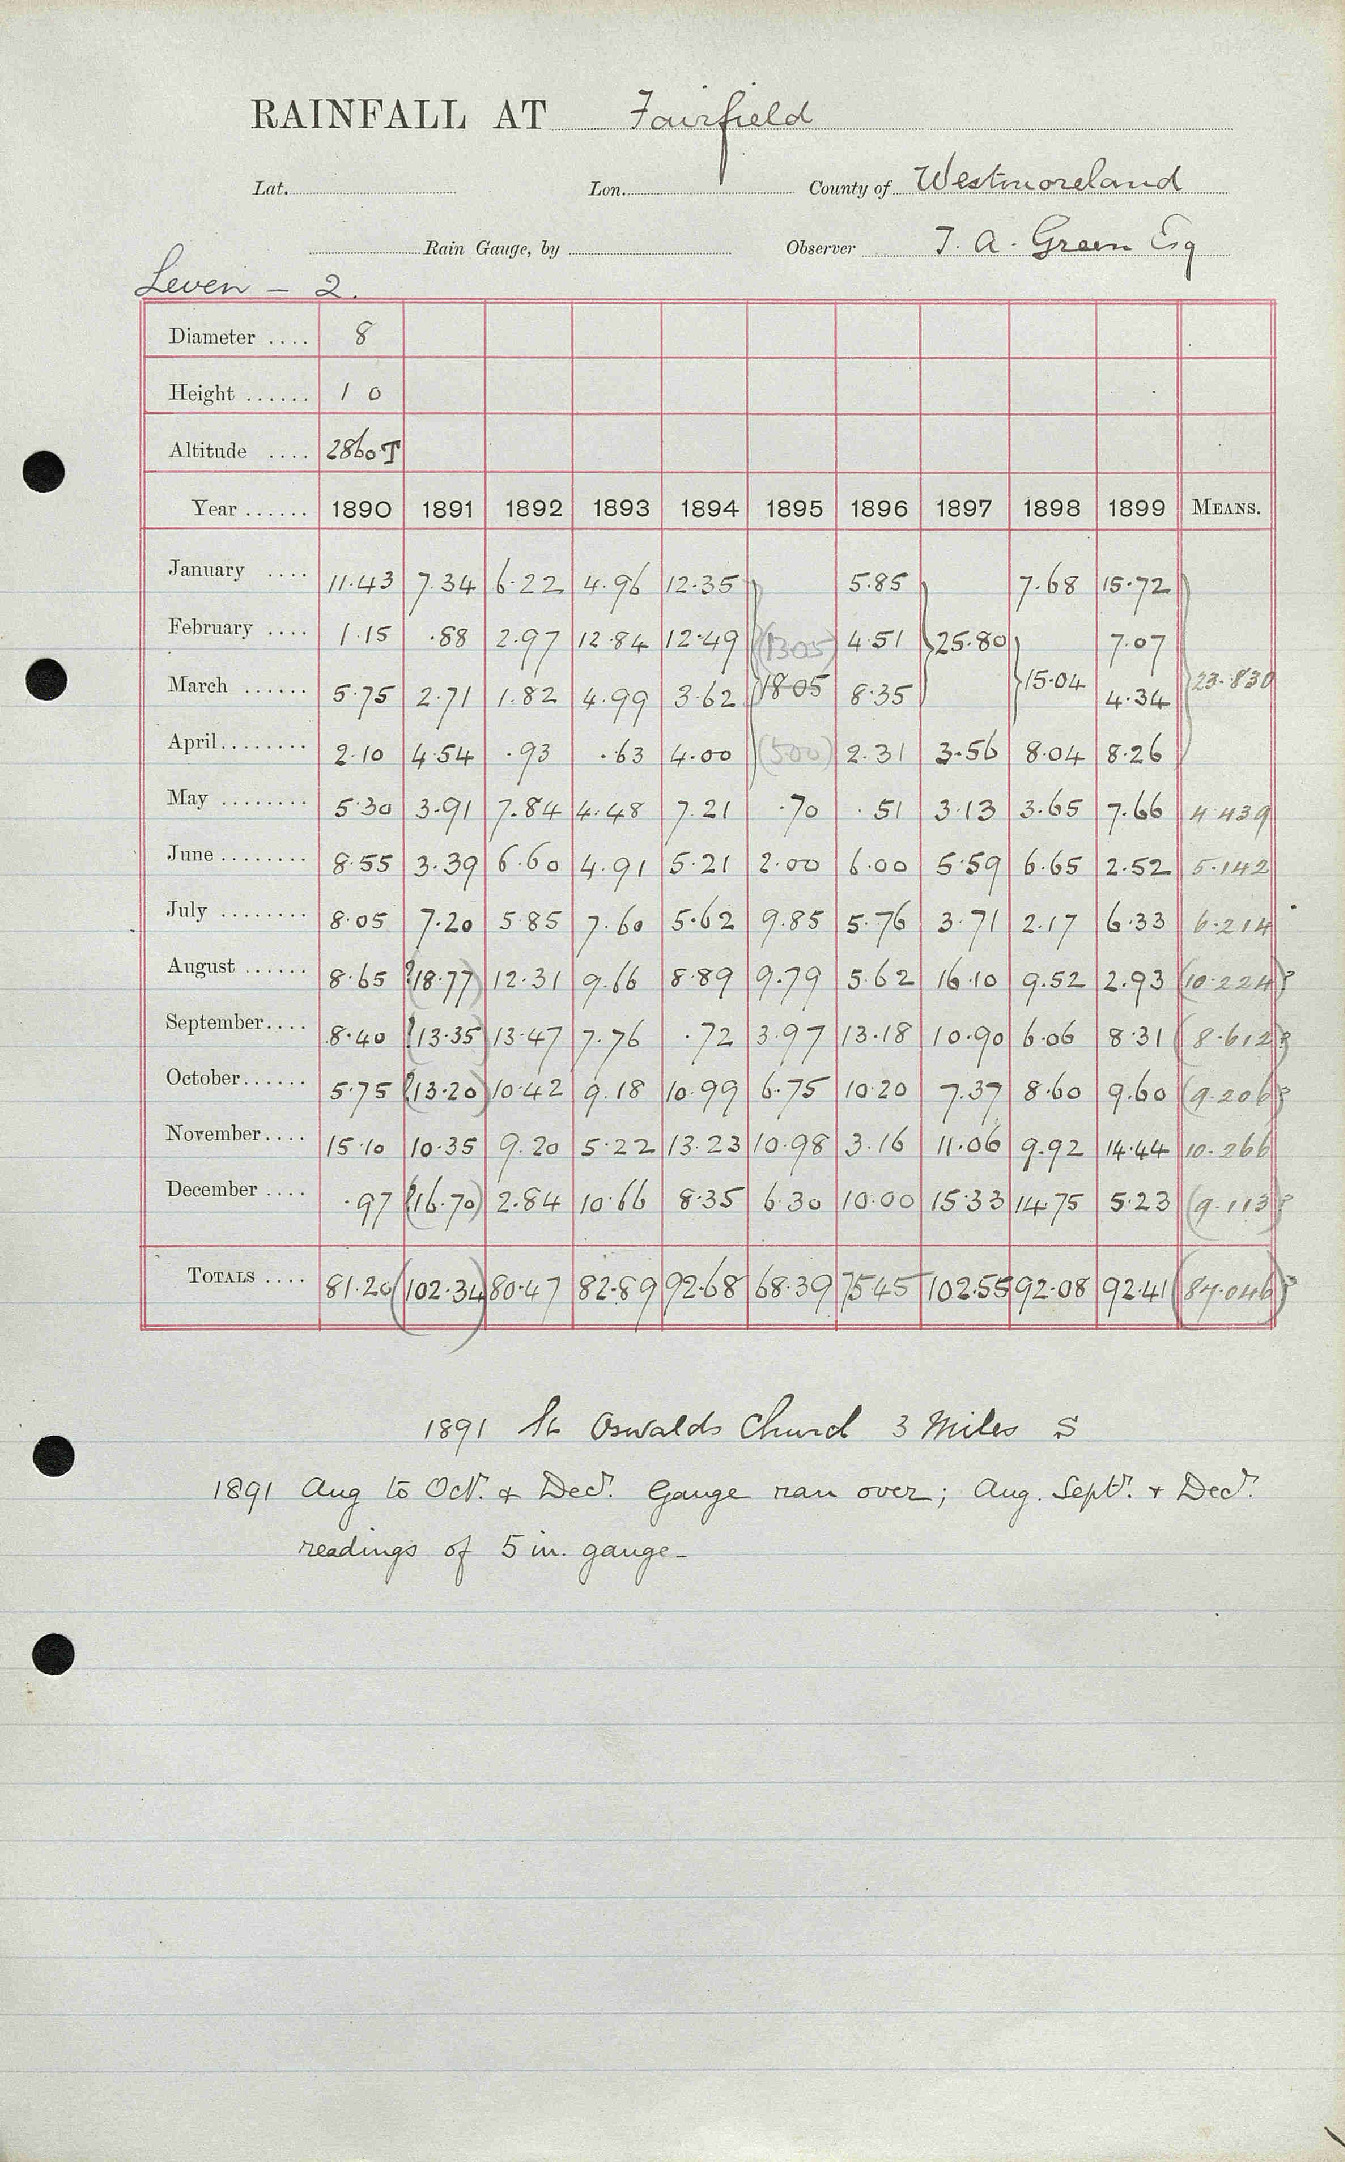 RAINFALL AT Fairfield
Lat. Lon. County of Westmoreland
Rain Gauge, by Observer T. A. Green Esq
Leven - 2.
Diameter .... 8
Height ...... 1 0
Altitude .... 2860 T
Year ...... 1890 1891 1892 1893 1894 1895 1896 1897 1898 1899 MEANS.
January .... 11.43 7.34 6.22 4.96 12.35 5.85 7.68 15.72
February .... 1.15 .88 2.97 12.84 12.49 (1305) 4.51 25.80 7.07
March ...... 5.75 2.71 1.82 4.99 3.62 1805 8.35 15.04 4.34 23.830
April........ 2.10 4.54 .93 .63 4.00 (500) 2.31 3.56 8.04 8.26
May ........ 5.30 3.91 7.84 4.48 7.21 .70 .51 3.13 3.65 7.66 4.439
June ........ 8.55 3.39 6.60 4.91 5.21 2.00 6.00 5.59 6.65 2.52 5.142
July ........ 8.05 7.20 5.85 7.60 5.62 9.85 5.76 3.71 2.17 6.33 6.214
August ...... 8.65 ?(18.77) 12.31 9.66 8.89 9.79 5.62 16.10 9.52 2.93 (10.224)?
September.... 8.40 ?(13.35) 13.47 7.76 .72 3.97 13.18 10.90 6.06 8.31 (8.612)?
October...... 5.75 ?(13.20) 10.42 9.18 10.99 6.75 10.20 7.37 8.60 9.60 (9.206)?
November.... 15.10 10.35 9.20 5.22 13.23 10.98 3.16 11.06 9.92 14.44 10.266
December .... .97 ?(16.70) 2.84 10.66 8.35 6.30 10.00 15.33 14.75 5.23 (9.113)?
TOTALS .... 81.20 (102.34) 80.47 82.89 92.68 68.39 75.45 102.55 92.08 92.41 (87.046)?
1891 St Oswalds Church 3 Miles S
1891 Aug to Oct. & Dec. Gauge ran over; Aug. Sept. & Dec.
readings of 5 in. gauge -